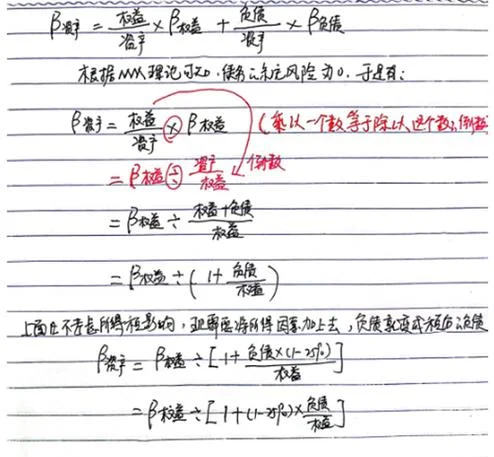 β资产 = 权益/资产 × β权益 + 负债/资产 × β负债
根据MM理论可知,债务的系统风险为0,于是有:
β资产 = 权益/资产 × β权益 (乘以一个数等于除以这个数的倒数
= β权益 ÷ 资产/权益 倒数
= β权益 ÷ 权益+负债/权益
= β权益 ÷ (1 + 负债/权益)
上面在不考虑所得税影响,如果把所得税因素加上去,负债就变成税后负债
β资产 = β权益 ÷ [1 + 负债×(1-25%)/权益]
= β权益 ÷ [1 + (1-25%) × 负债/权益]